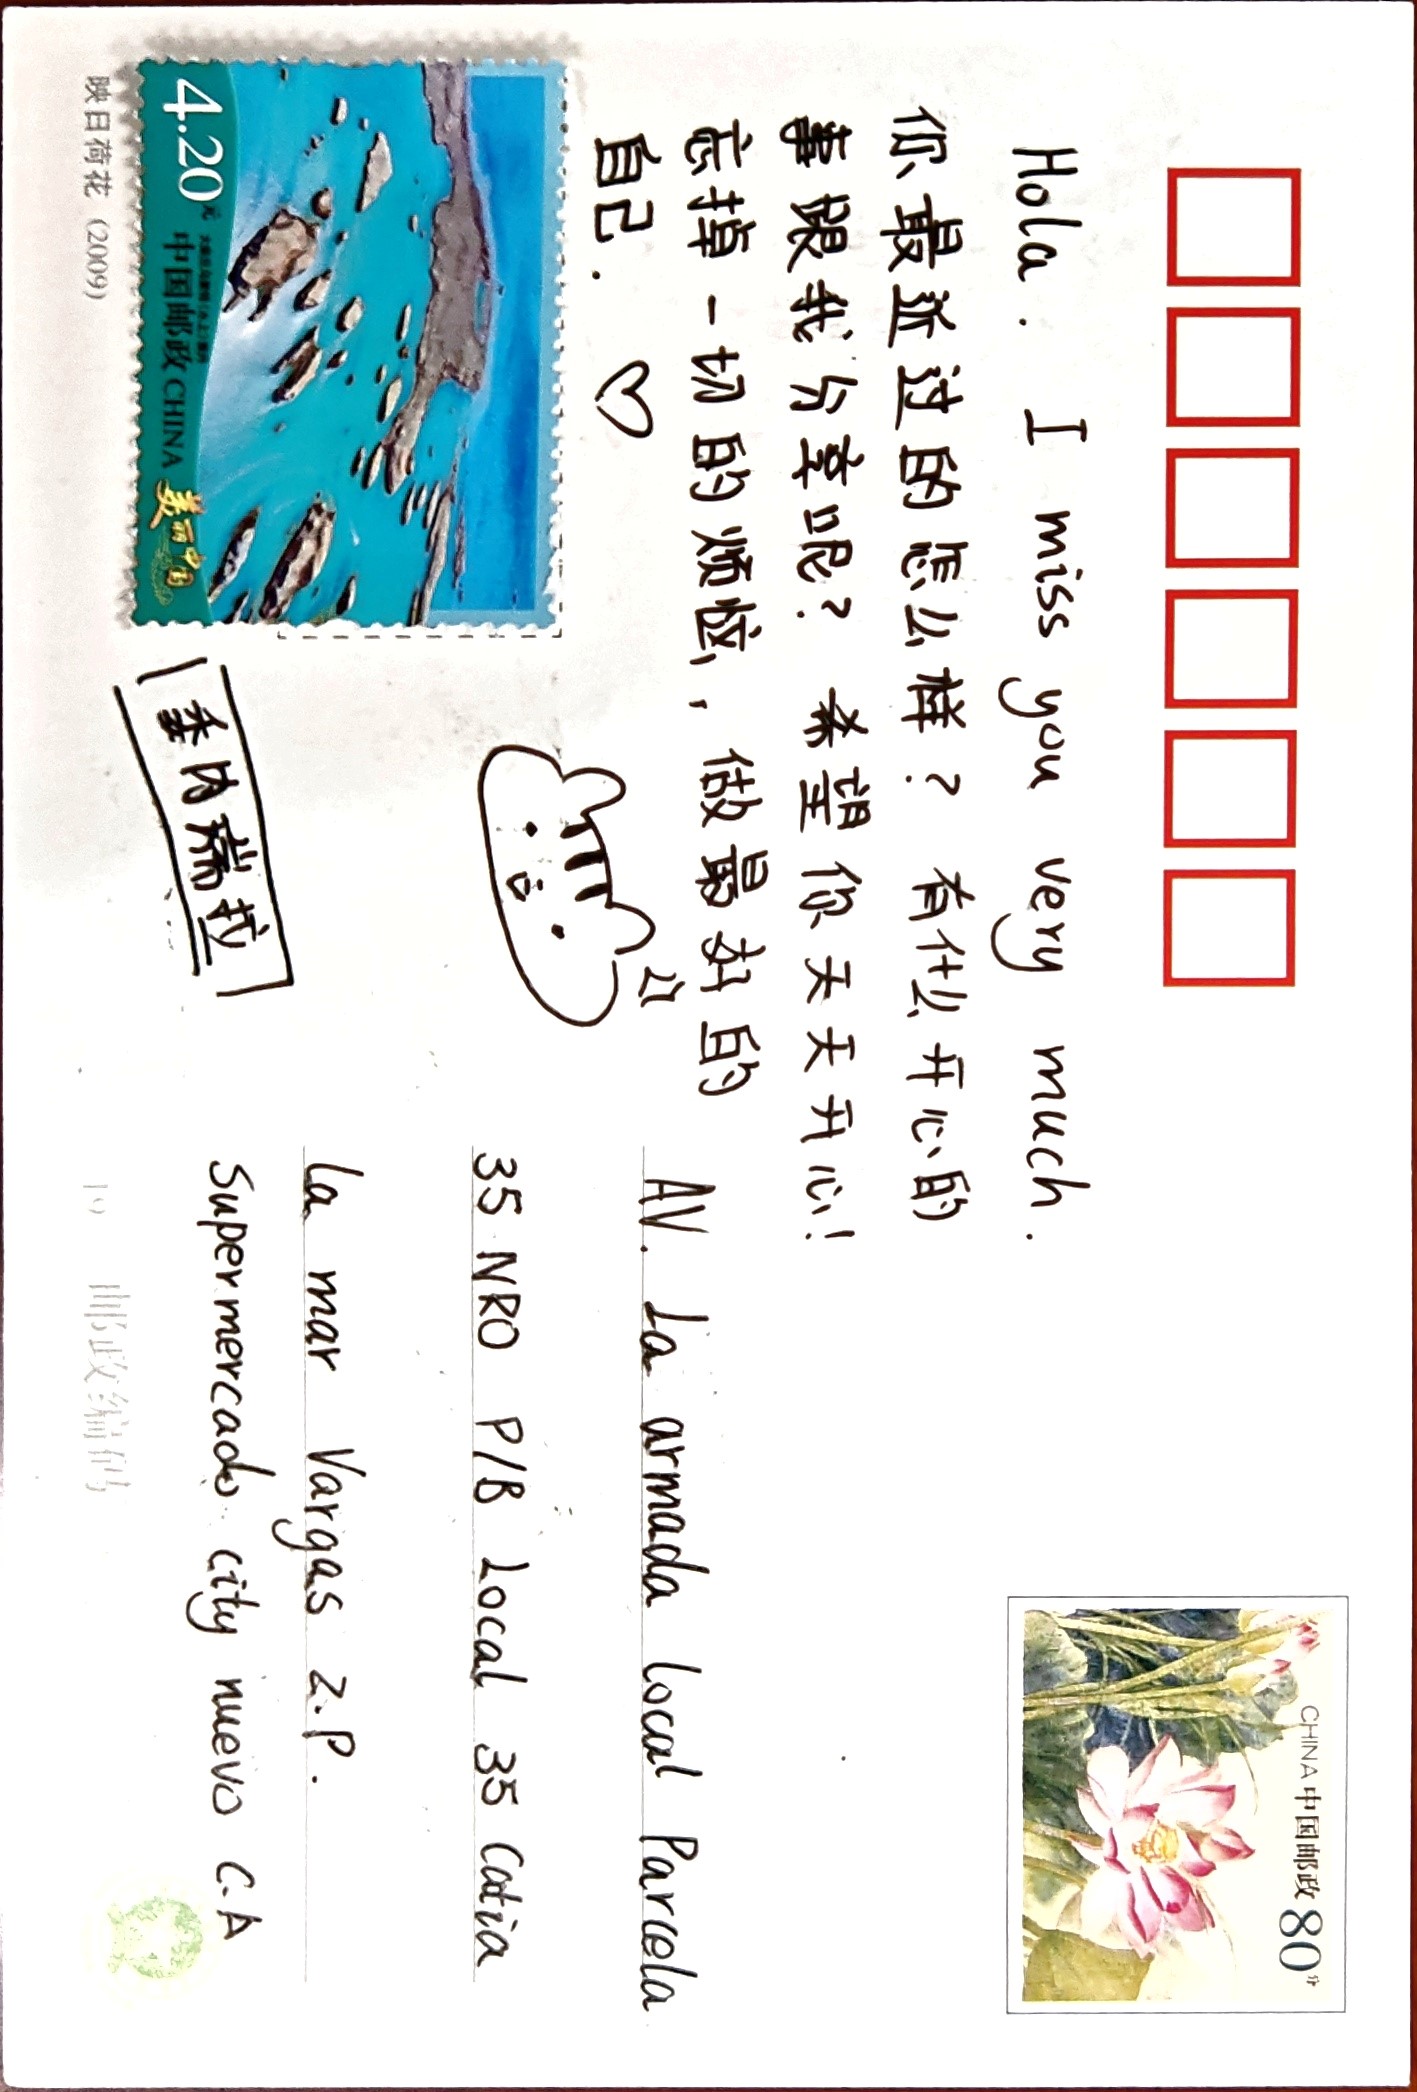 CHINA 中国邮政 80分
Hola. I miss you very much.
你最近过的怎么样？有什么开心的
事跟我分享呢？ 希望你天天开心！
忘掉一切的烦恼，做最好的
自己.
AV. La armada local Parcela
35 NRO P/B Local 35 Catia
La mar Vargas Z.P.
Supermercado city nuevo C.A
4.20元 中国邮政 CHINA 美丽中国
委内瑞拉
映日荷花 (2009)
邮政编码